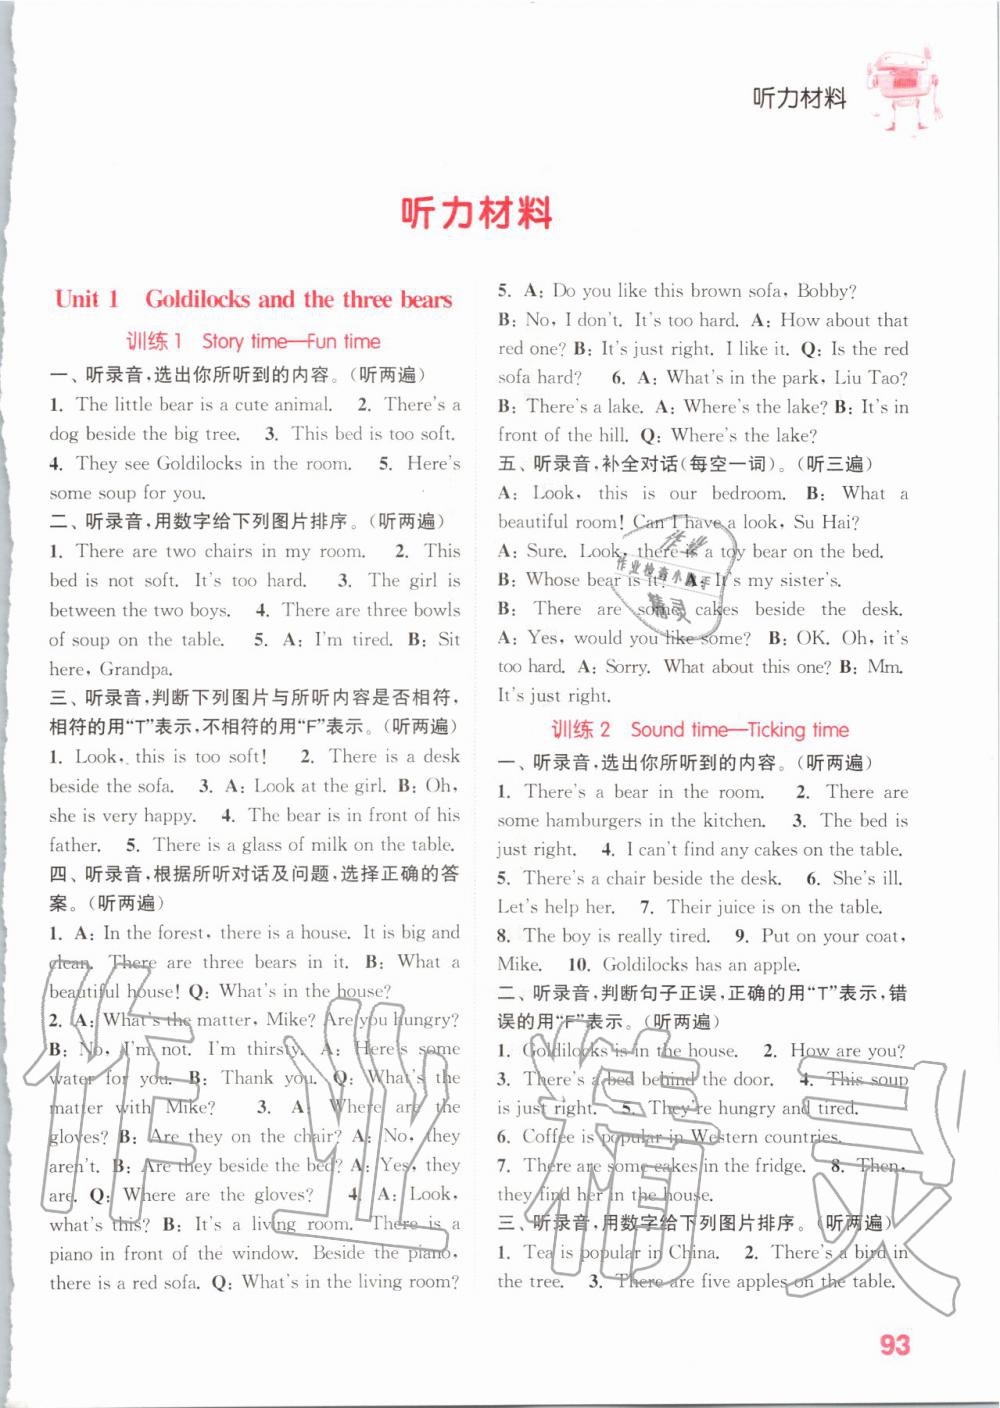 听力材料
听力材料
Unit 1 Goldilocks and the three bears
训练1 Story time—Fun time
一、听录音,选出你所听到的内容。(听两遍)
1. The little bear is a cute animal. 2. There's a
dog beside the big tree. 3. This bed is too soft.
4. They see Goldilocks in the room. 5. Here's
some soup for you.
二、听录音,用数字给下列图片排序。(听两遍)
1. There are two chairs in my room. 2. This
bed is not soft. It's too hard. 3. The girl is
between the two boys. 4. There are three bowls
of soup on the table. 5. A: I'm tired. B: Sit
here, Grandpa.
三、听录音,判断下列图片与所听内容是否相符,
相符的用“T”表示,不相符的用“F”表示。(听两遍)
1. Look, this is too soft! 2. There is a desk
beside the sofa. 3. A: Look at the girl. B: Oh,
she is very happy. 4. The bear is in front of his
father. 5. There is a glass of milk on the table.
四、听录音,根据所听对话及问题,选择正确的答
案。(听两遍)
1. A: In the forest, there is a house. It is big and
clean. There are three bears in it. B: What a
beautiful house! Q: What's in the house?
2. A: What's the matter, Mike? Are you hungry?
B: No, I'm not. I'm thirsty. A: Here's some
water for you. B: Thank you. Q: What's the
matter with Mike? 3. A: Where are the
gloves? B: Are they on the chair? A: No, they
aren't. B: Are they beside the bed? A: Yes, they
are. Q: Where are the gloves? 4. A: Look,
what's this? B: It's a living room. There is a
piano in front of the window. Beside the piano,
there is a red sofa. Q: What's in the living room?
5. A: Do you like this brown sofa, Bobby?
B: No, I don't. It's too hard. A: How about that
red one? B: It's just right. I like it. Q: Is the red
sofa hard? 6. A: What's in the park, Liu Tao?
B: There's a lake. A: Where's the lake? B: It's in
front of the hill. Q: Where's the lake?
五、听录音,补全对话(每空一词)。(听三遍)
A: Look, this is our bedroom. B: What a
beautiful room! Can I have a look, Su Hai?
A: Sure. Look, there is a toy bear on the bed.
B: Whose bear is it? A: It's my sister's.
B: There are some cakes beside the desk.
A: Yes, would you like some? B: OK. Oh, it's
too hard. A: Sorry. What about this one? B: Mm.
It's just right.
训练2 Sound time—Ticking time
一、听录音,选出你所听到的内容。(听两遍)
1. There's a bear in the room. 2. There are
some hamburgers in the kitchen. 3. The bed is
just right. 4. I can't find any cakes on the table.
5. There's a chair beside the desk. 6. She's ill.
Let's help her. 7. Their juice is on the table.
8. The boy is really tired. 9. Put on your coat,
Mike. 10. Goldilocks has an apple.
二、听录音,判断句子正误,正确的用“T”表示,错
误的用“F”表示。(听两遍)
1. Goldilocks is in the house. 2. How are you?
3. There's a bed behind the door. 4. This soup
is just right. 5. They're hungry and tired.
6. Coffee is popular in Western countries.
7. There are some cakes in the fridge. 8. Then,
they find her in the house.
三、听录音,用数字给下列图片排序。(听两遍)
1. Tea is popular in China. 2. There's a bird in
the tree. 3. There are five apples on the table.
93
作业精灵
作业
作业检查小助手
精灵